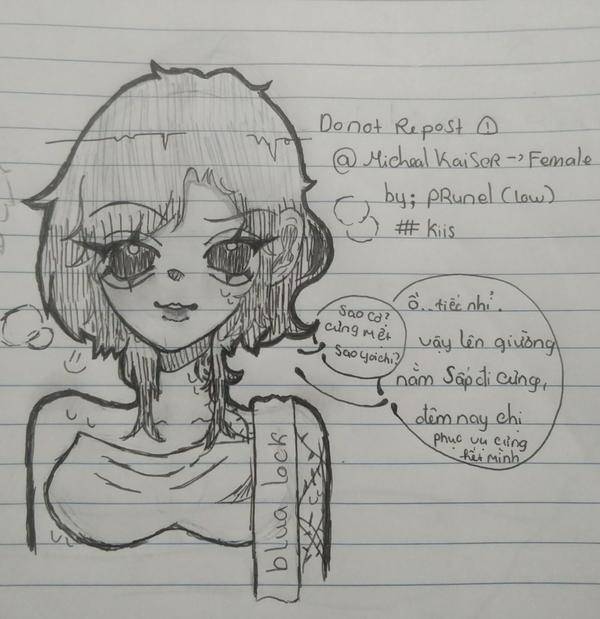 Do not Repost ①
@ Micheal KaiSOR → Female
by; pRunel (low)
# Kiis
Sao cơ?
cưng mệt
Sao yoichi?
ồ.. tiếc nhỉ.
vậy lên giường
nằm Sấp đi cưng,
đêm nay chị
phục vụ cưng
hết mình
blua lock